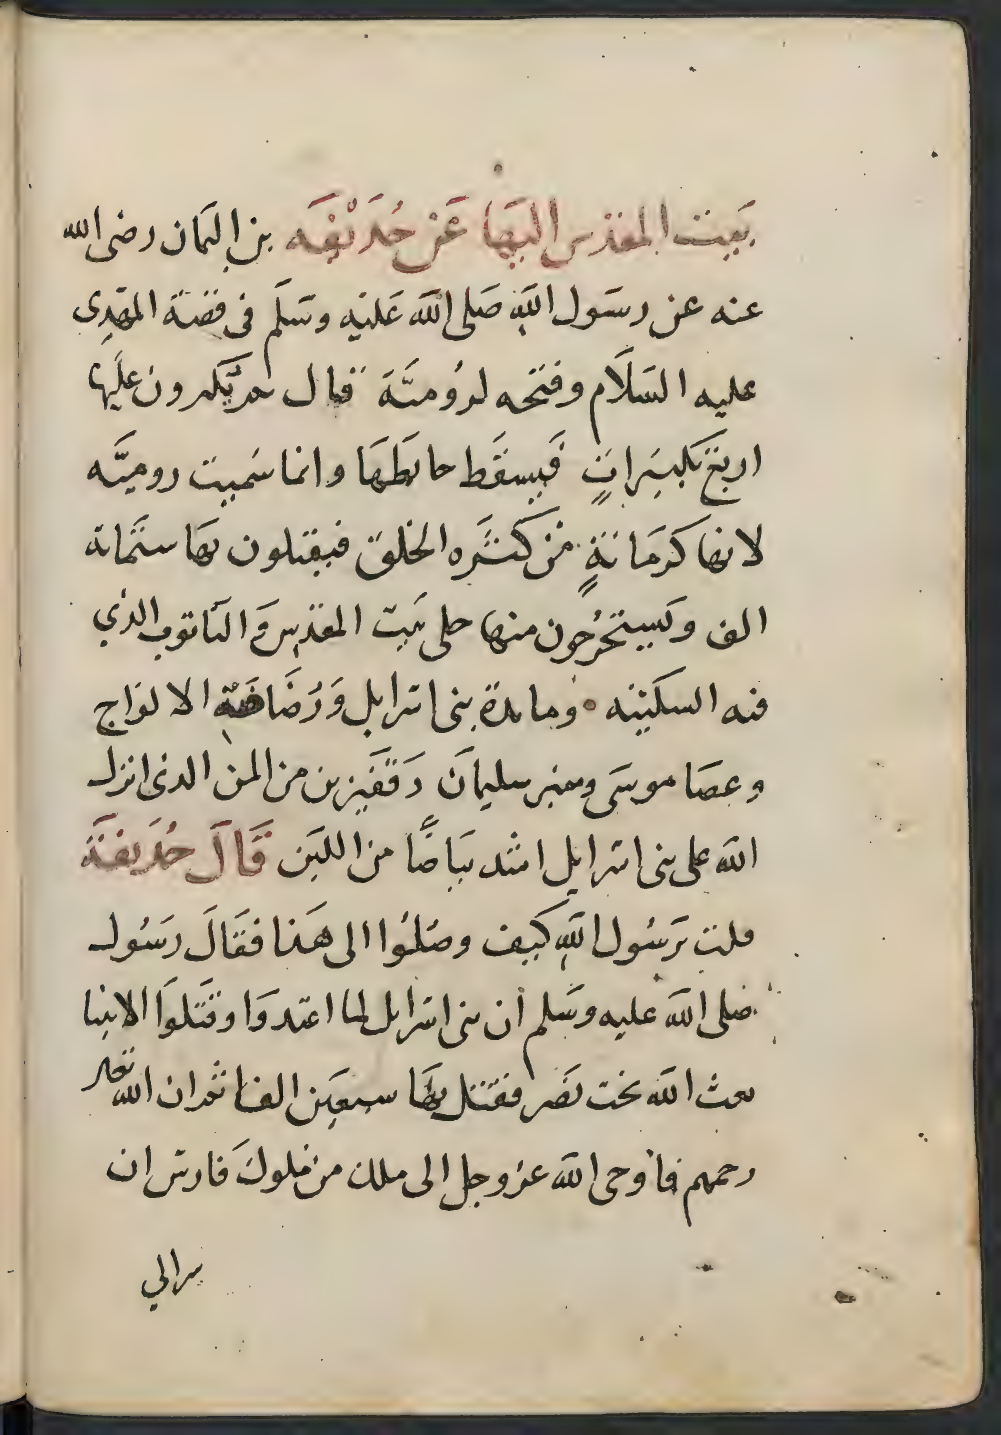 بَيت المقدس اليهَا عَن حُذَيْفَه بن اليمان رضى الله
عنه عن رسَول اللهِ صَلى اللهَ عَليْهِ وسَلمَ فى قصّة المهْدِى
عليه السَلَام وفتحه لرُوميَّة قال ثم يكبرون عليها
اربع تكبيَراتٍ فَيسقَط حائطهَا وانما سَميت روميَّه
لانها كرمانةٍ من كثَره الخلق فيقتلون بهَا ستَّماية
الف وَيستخرُجون منها حلى بَيت المقدسِ وَالتَابوت الذي
فيه السكينه • ومايدة بنى اسرايل وَرُضَاضَة الالوَاح
وعصَا موسَى ومنبر سليمانَ وَقفَيزين من المن الذى انزل
اللهَ على بنى اسرايل اشد بَيَاضًا من اللبَن قَالَ حُذَيفَةَ
قلت يَرسُول اللهِ كيف وصَلُوا الى هَذا فقَالَ رسَوُل
صَلى اللهَ عليه وسَلم ان بنى اسَرايل لما اعتدوَا وقتَلوَا الانبيا
بعث اللهَ بخت نصَر فقتل بهَا سبعَين الفا ثم ان الله تعالى
رحمهم فاوحى اللهَ عز وجل الى ملك من مُلوكَ فارس ان
سرالي